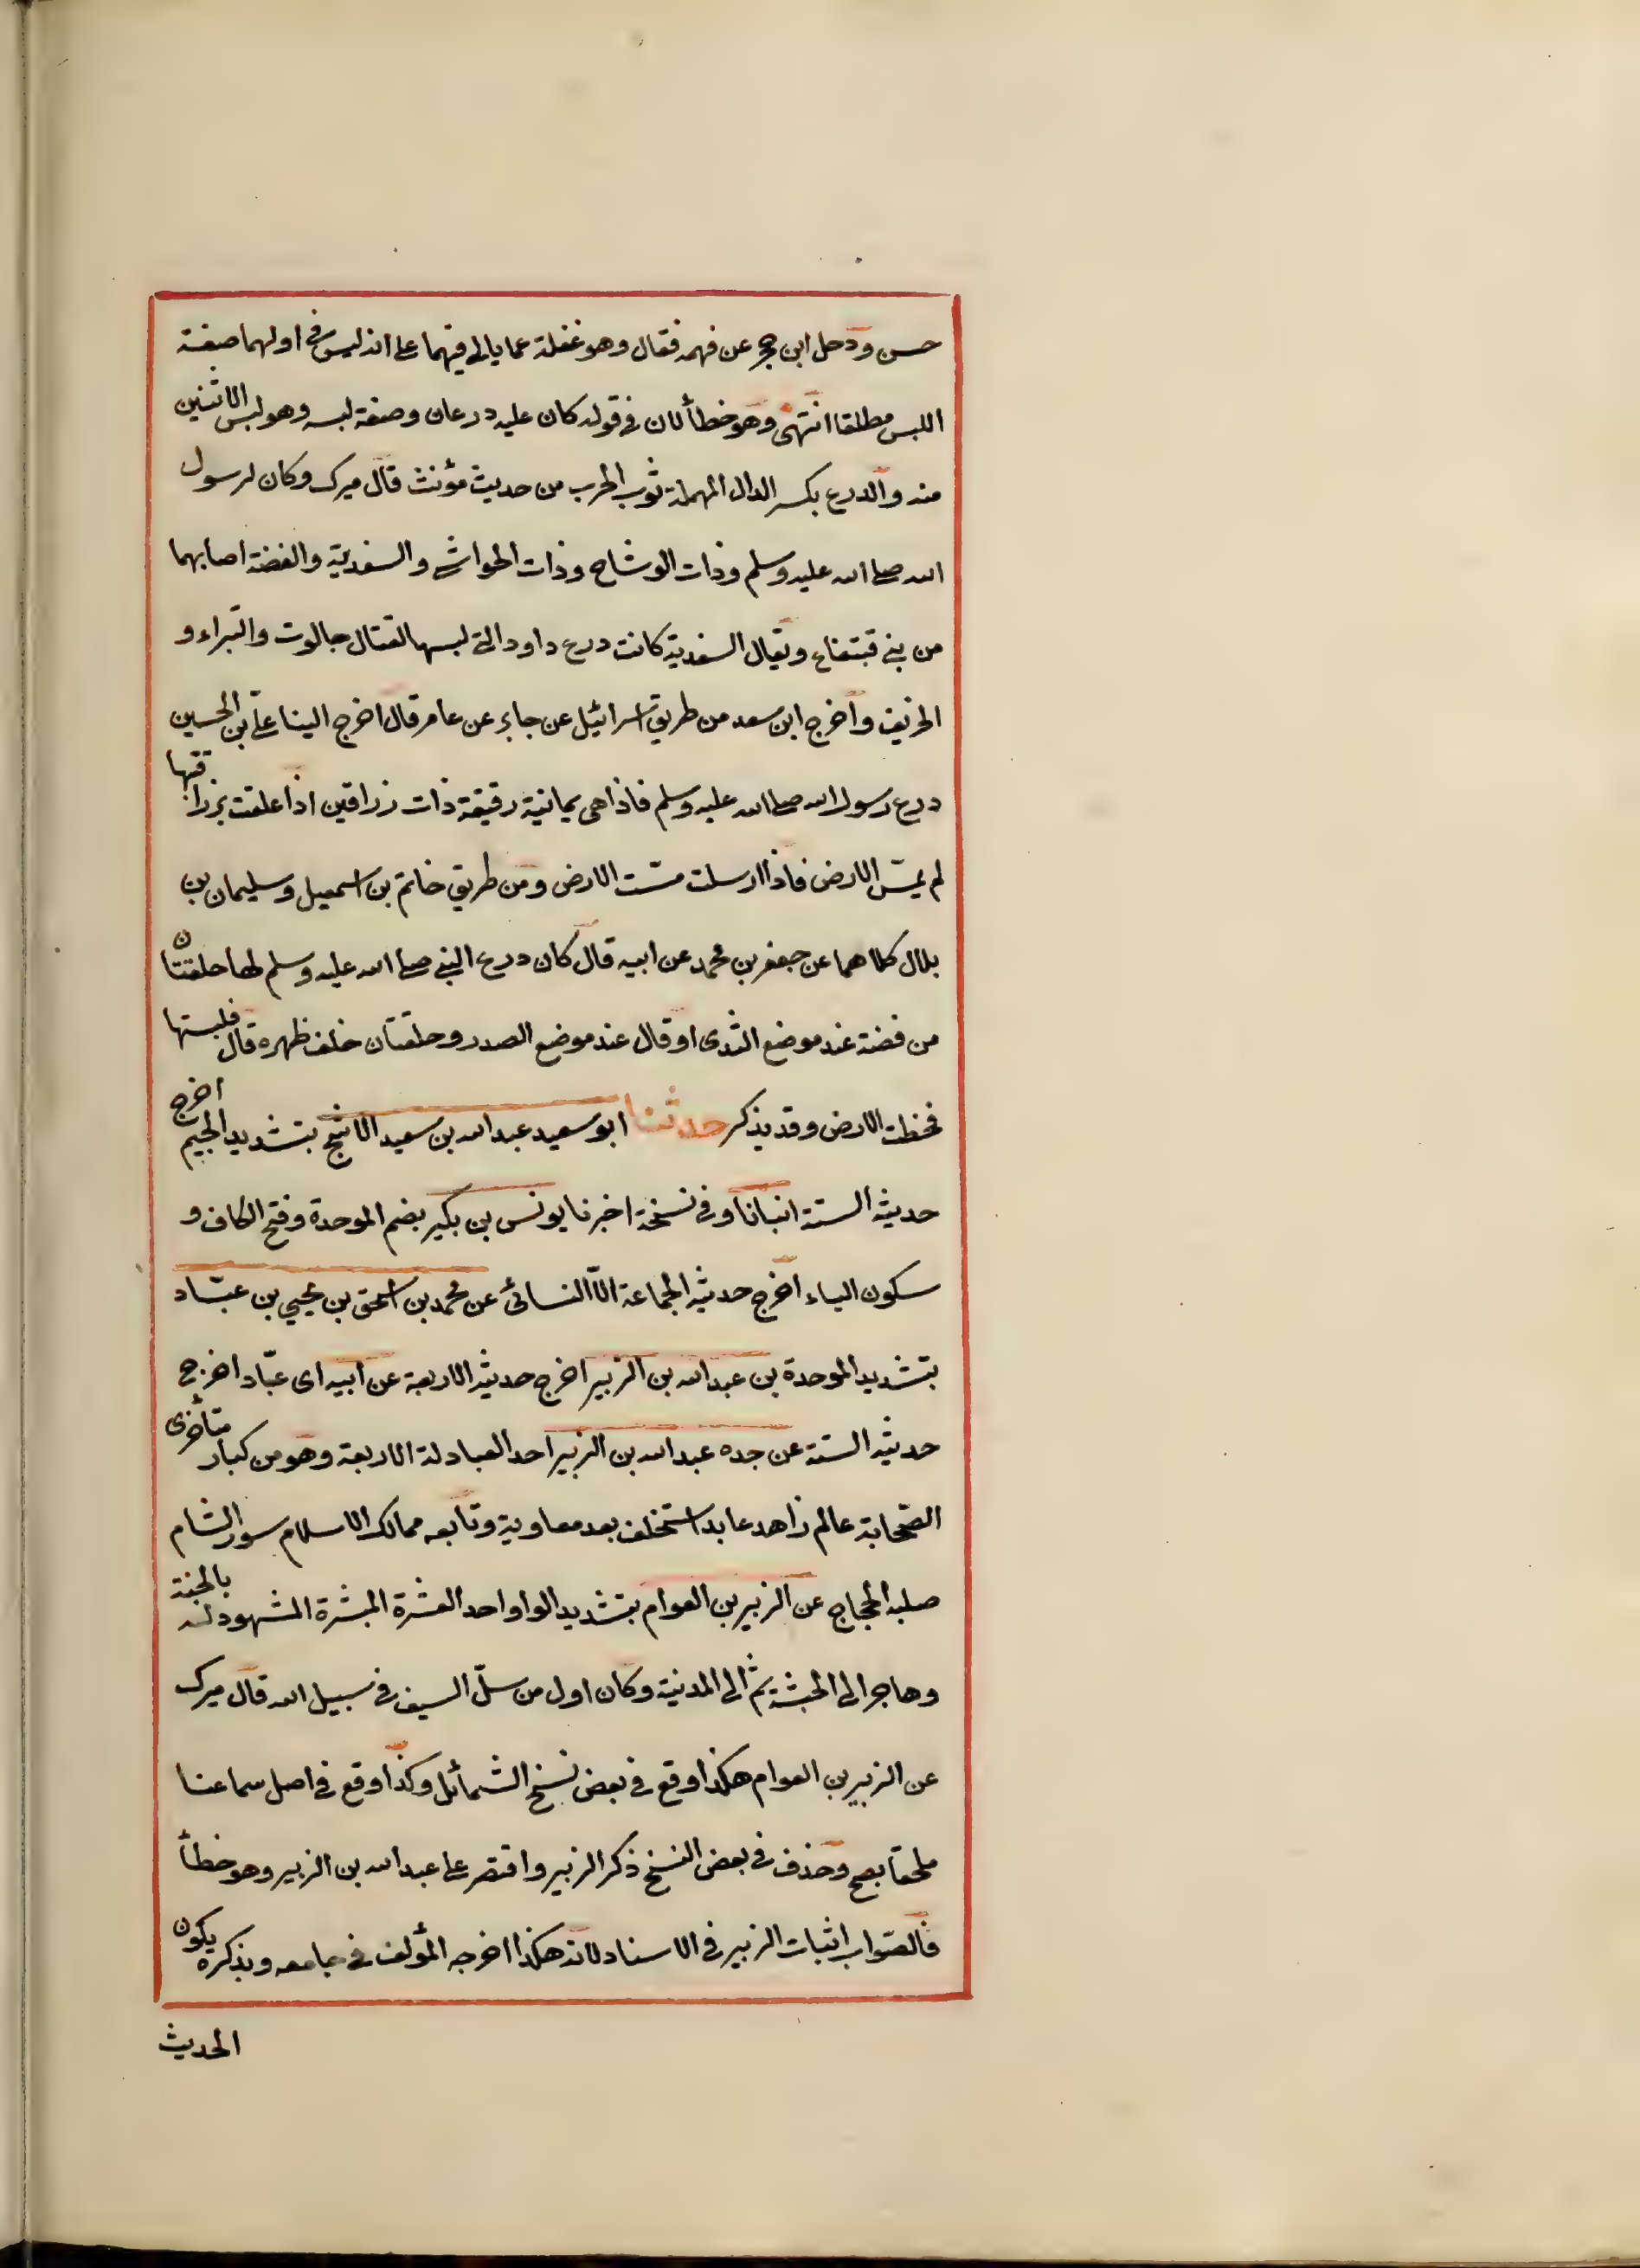 حسن ودخل ابن حجر عن فهمه فقال وهو غفلة عما يالى فيهما على انه ليس فى اولهما صفة
اللبس مطلقا انتهى وهو خطأ لان فى قوله كان عليه درعان وصفة لبسه وهو لبس الاثنين
منه والدرع بكسر الدال المهملة ثوب الحرب من حديث مؤنث قال ميرك وكان لرسول
الله صلى الله عليه وسلم وذات الوشاح وذات الحواشى والسفدية والفضة اصابهما
من بنى قبتفاع ويقال السفدية كانت درع داود التى لبسها لقتال جالوت والتبراء و
الخريف وأخرج ابن سعد من طريق اسرائيل عن جابر عن عامر قال اخرج الينا على بن الحسين
درع رسول الله صلى الله عليه وسلم فاذا هى يمانية رقيقة ذات زراقين اذا علقت بزراقتها
لم يمس الارض فاذا ارسلت مست الارض ومن طريق خاتم بن اسمعيل وسليمان بن
بلال كلاهما عن جعفر بن محمد عن ابيه قال كان درع النبى صلى الله عليه وسلم لها حلقتان
من فضة عند موضع الثدى او قال عند موضع الصدر وحلقتان خلف ظهره قال فلبستها
فخطت الارض وقد يذكر حدثنا ابو سعيد عبد الله بن سعيد الاشج بتشديد الجيم اخرج
حديثه الستة انبانا وفى نسخة اخبرنا يونس بن بكير بضم الموحدة وفتح الكاف و
سكون الياء اخرج حديثه الجماعة الا النسائى عن محمد بن اسحق بن يحيى بن عباد
بتشديد الموحدة بن عبد الله بن الزبير اخرج حديثه الاربعة عن ابيه اى عباد اخرج
حديثه الستة عن جده عبد الله بن الزبير احد العبادلة الاربعة وهو من كبار متأخرى
الصحابة عالم زاهد عابد استخلف بعد معاوية وتابعه ممالك الاسلام سور الشام
صلبه الحجاج عن الزبير بن العوام بتشديد الواو احد العشرة المبشرة المشهود له بالجنة
وهاجر الى الحبشة ثم الى المدنية وكان اول من سلّ السيف فى سبيل الله قال ميرك
عن الزبير بن العوام هكذا وقع فى بعض نسخ الشمائل وكذا وقع فى اصل سماعنا
ملحقا بصح وحذف فى بعض النسخ ذكر الزبير واقتصر على عبد الله بن الزبير وهو خطأ
فالصواب اثبات الزبير فى الاسناد لانه هكذا اخرجه المؤلف فى جامعه وبذكره يكون
الحديث